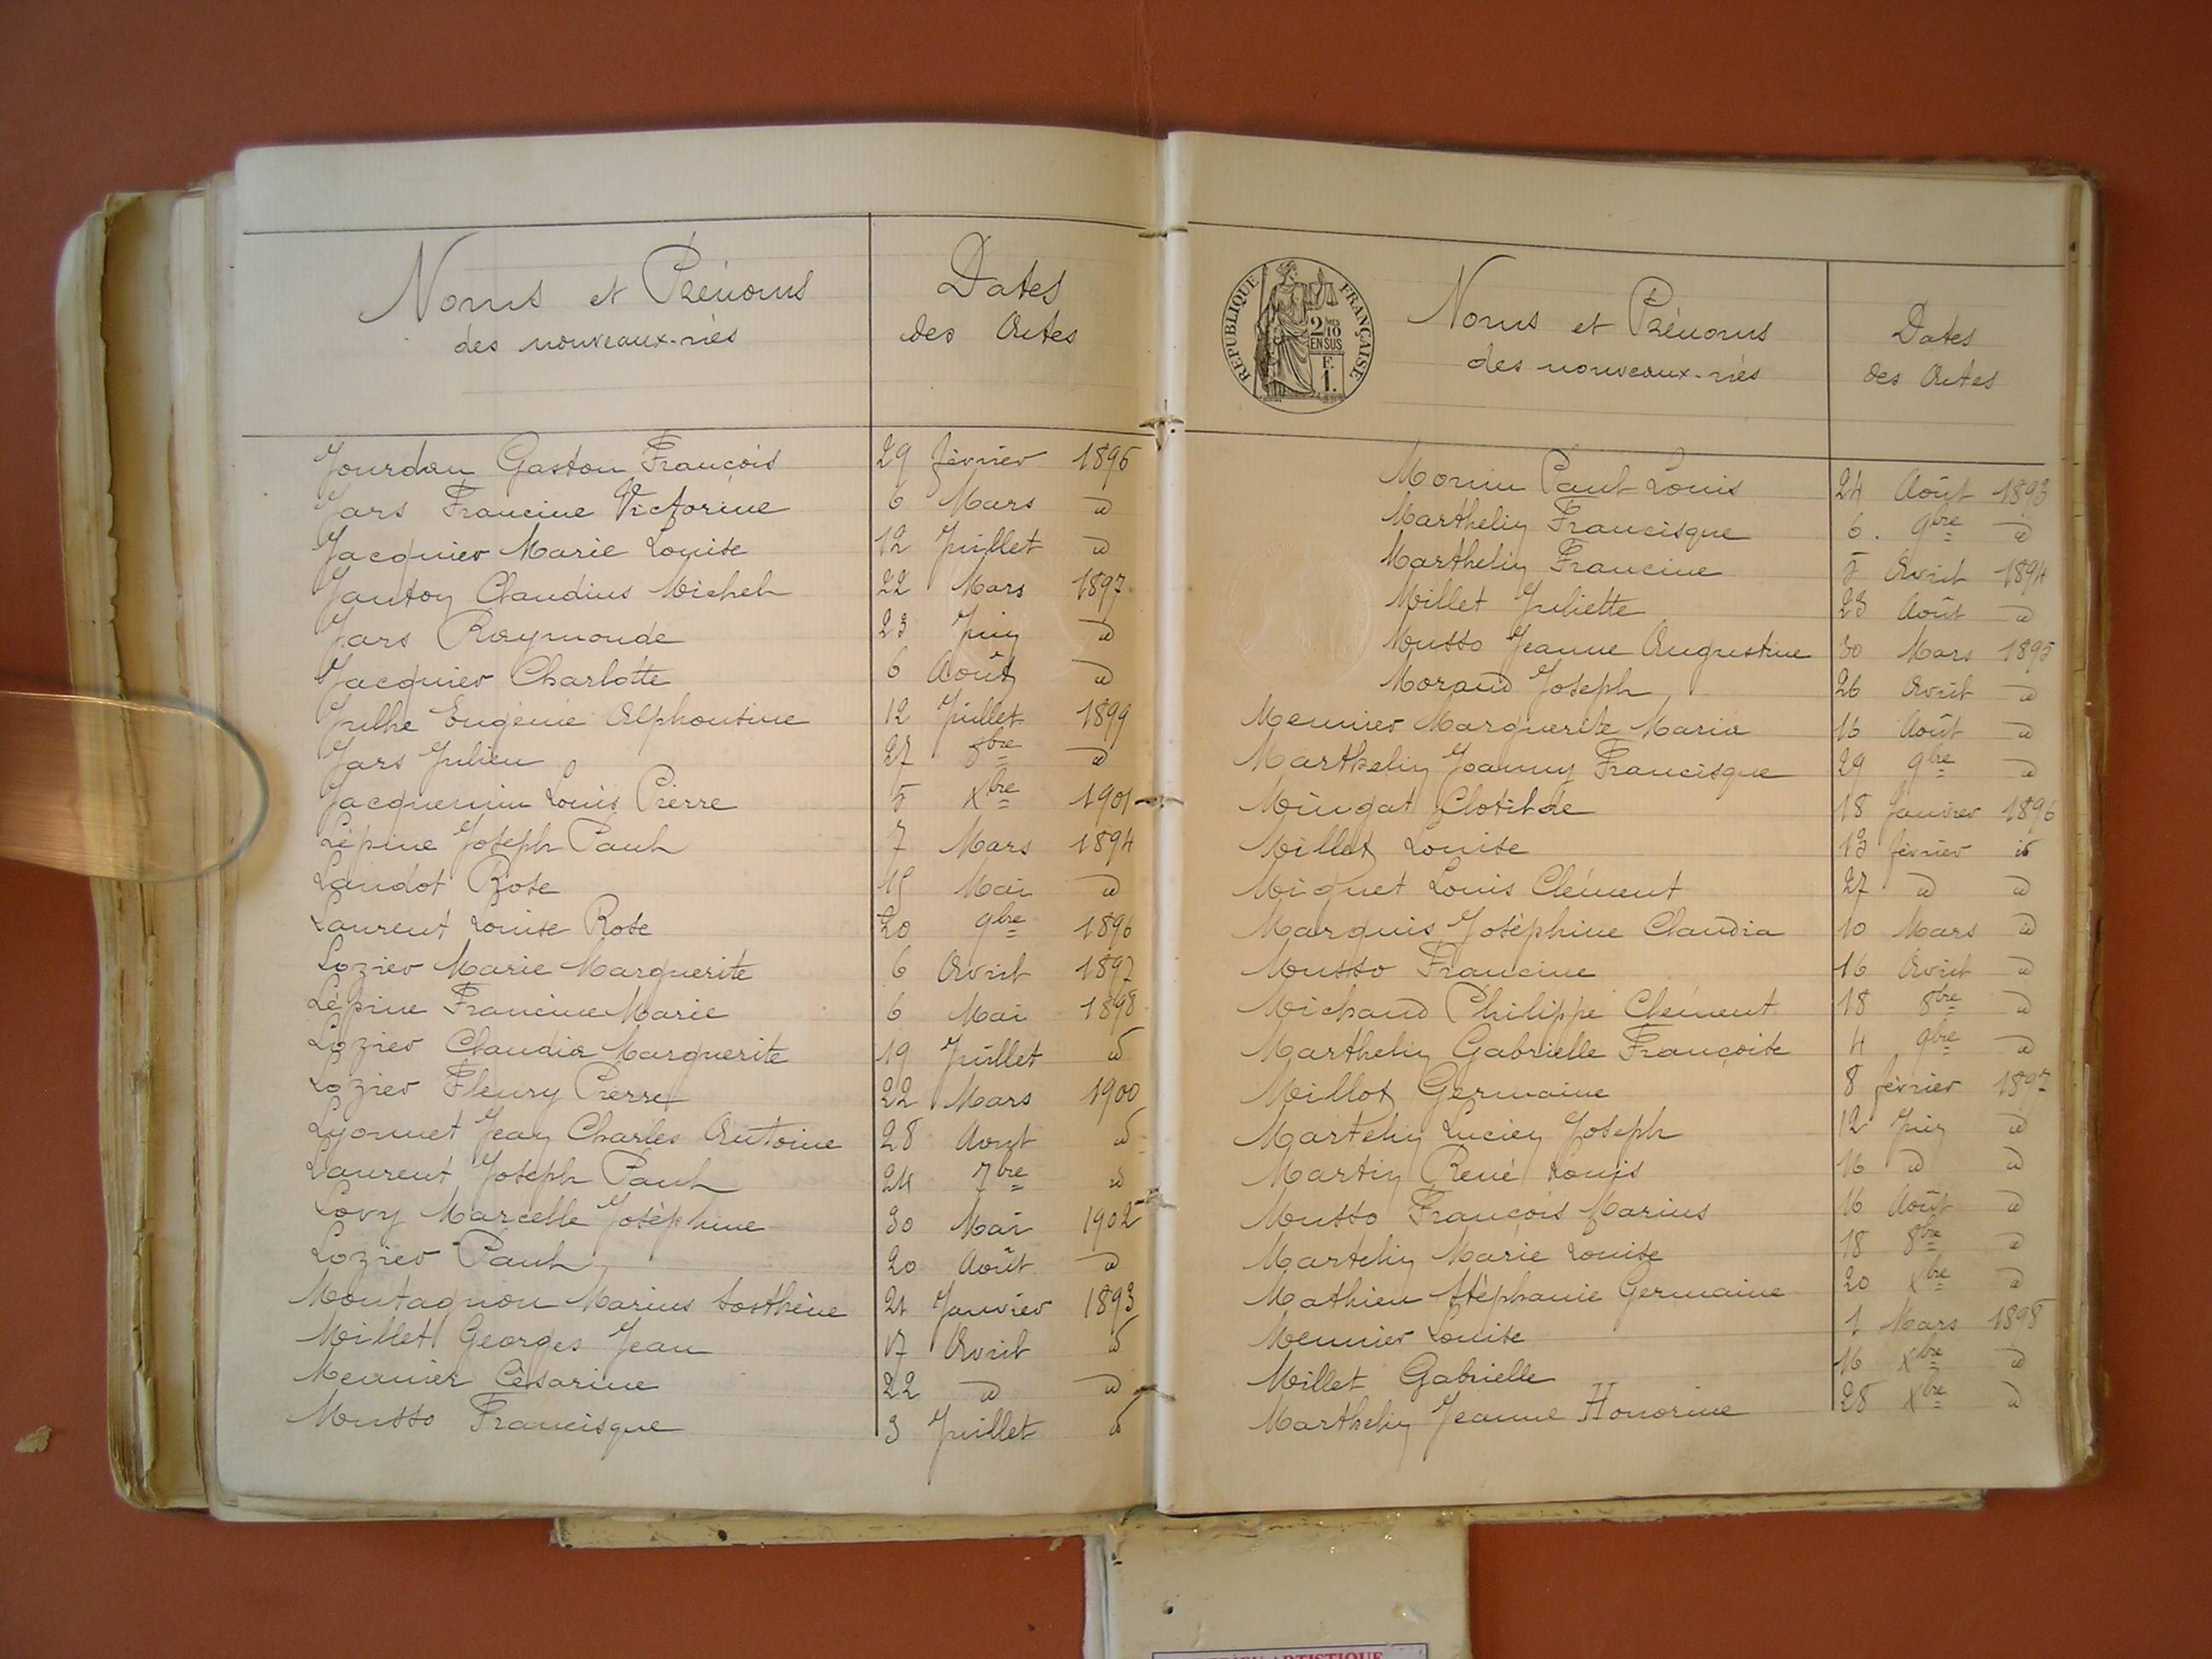 Noms et Prénoms
des nouveaux-nés
Dates
des Actes
Jourdan Gaston François 29 février 1896
Jars Francine Victorine 6 Mars d
Jacquier Marie Louise 12 Juillet d
Janton Claudius Michel 22 Mars 1897
Jars Raymonde 23 Juin d
Jacquier Charlotte 6 Août d
Julhe Eugénie Alphonsine 12 Juillet 1899
Jars Julien 27 8bre d
Jacquemin Louis Pierre 5 Xbre 1901
Lépine Joseph Paul 7 Mars 1894
Landot Rose 15 Mai d
Laurent Louise Rose 20 9bre 1896
Lozier Marie Marguerite 6 Avril 1897
Lépine Francine Marie 6 Mai 1898
Lozier Claudia Marguerite 19 Juillet d
Lozier Fleury Pierre 22 Mars 1900
Lyonnet Jean Charles Antoine 28 Aout d
Laurent Joseph Paul 24 7bre d
Lovy Marcelle Joséphine 30 Mai 1902
Lozier Paul 20 Août d
Montagnon Marius Sosthène 21 Janvier 1893
Millet Georges Jean 17 Avril d
Meunier Césarine 22 d d
Musso Francisque 3 Juillet d
RÉPUBLIQUE FRANÇAISE
2/10
EN SUS
F.
1.
Noms et Prénoms
des nouveaux-nés
Dates
des Actes
Monin Paul Louis 24 Août 1893
Marthelin Francisque 6. 9bre d
Marthelin Francine 5 Avril 1894
Millet Juliette 23 Août d
Musso Jeanne Augustine 30 Mars 1895
Morand Joseph 26 Avril d
Meunier Marguerite Maria 16 Août d
Marthelin Joanny Francisque 29 9bre d
Mingat Clotilde 18 Janvier 1896
Millet Louise 13 février d
Miquet Louis Clément 27 d d
Marquis Joséphine Claudia 10 Mars d
Musso Francine 16 Avril d
Michaud Philippe Clément 18 8bre d
Marthelin Gabrielle Françoise 4 9bre d
Millot Germaine 8 février 1897
Martelin Lucien Joseph 12 Juin d
Martin René Louis 16 d d
Musso François Marius 16 Août d
Martelin Marie Louise 18 8bre d
Mathieu Stéphanie Germaine 20 Xbre d
Meunier Louise 1 Mars 1898
Millet Gabrielle 16 Xbre d
Marthelin Jeanne Honorine 28 Xbre d